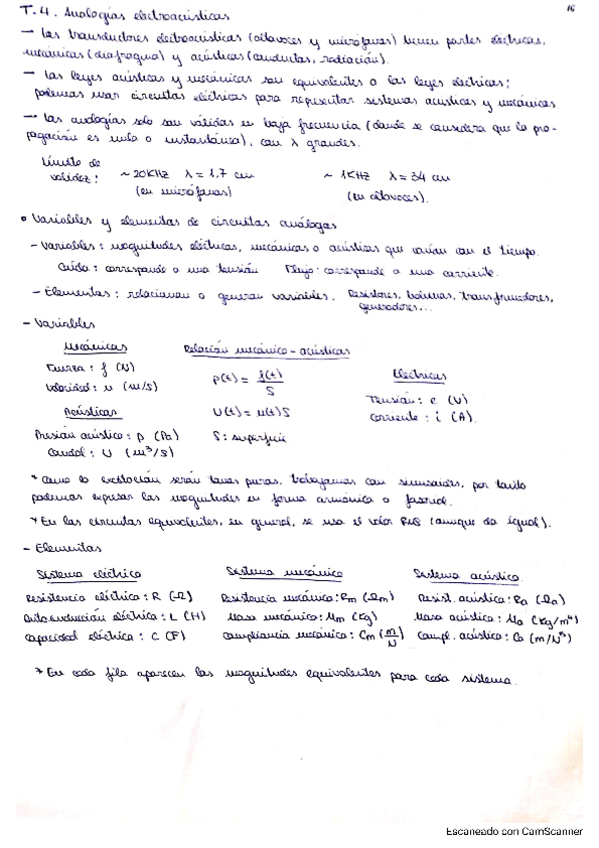 T.4. Analogías electroacústicas
16
→ Los transductores electroacústicos (altavoces y micrófonos) tienen partes eléctricas,
mecánicas (diafragma) y acústicas (conductos, radiación).
→ Las leyes acústicas y mecánicas son equivalentes a las leyes eléctricas;
podemos usar circuitos eléctricos para representar sistemas acústicos y mecánicos.
→ Las analogías solo son válidas en baja frecuencia (donde se considera que la pro-
pagación es nula o instantánea), con λ grandes.
Límite de validez: ~ 20KHz λ = 1,7 cm (en micrófonos) ~ 1KHz λ = 34 cm (en altavoces).
• Variables y elementos de circuitos análogos
- Variables: magnitudes eléctricas, mecánicas o acústicas que varían con el tiempo.
Caída: corresponde a una tensión Flujo: corresponde a una corriente.
- Elementos: relacionan o generan variables. Resistores, bobinas, transformadores,
generadores...
- Variables
Mecánicas Relación mecánico-acústicas
Fuerza: f (N) p(t) = f(t)/S Eléctricas
Velocidad: u (m/s) Tensión: e (V)
Acústicas U(t) = u(t)S Corriente: i (A).
Presión acústica: p (Pa) S: superficie
Caudal: U (m³/s)
* Como la excitación serán tonos puros, trabajamos con sinusoides, por tanto
podemos expresar las magnitudes en forma armónica o fasorial.
* En los circuitos equivalentes, en general, se usa el valor RMS (aunque da igual).
- Elementos
Sistema eléctrico Sistema mecánico Sistema acústico
Resistencia eléctrica: R (Ω) Resistencia mecánica: Rm (Ωm) Resist. acústica: Ra (Ωa)
Autoinducción eléctrica: L (H) Masa mecánica: Mm (Kg) Masa acústica: Ma (Kg/m⁴)
Capacidad eléctrica: C (F) Compliancia mecánica: Cm (m/N) Compl. acústica: Ca
* En cada fila aparecen las magnitudes equivalentes para cada sistema.
Escaneado con CamScanner